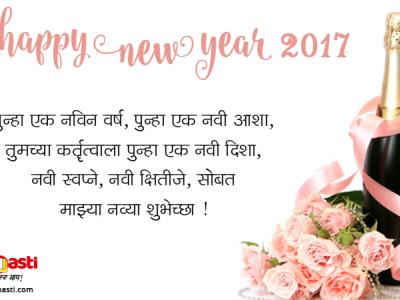 happy new year 2017
पुन्हा एक नविन वर्ष, पुन्हा एक नवी आशा,
तुमच्या कर्तृत्वाला पुन्हा एक नवी दिशा,
नवी स्वप्ने, नवी क्षितीजे, सोबत
माझ्या नव्या शुभेच्छा !
asti
asti.com